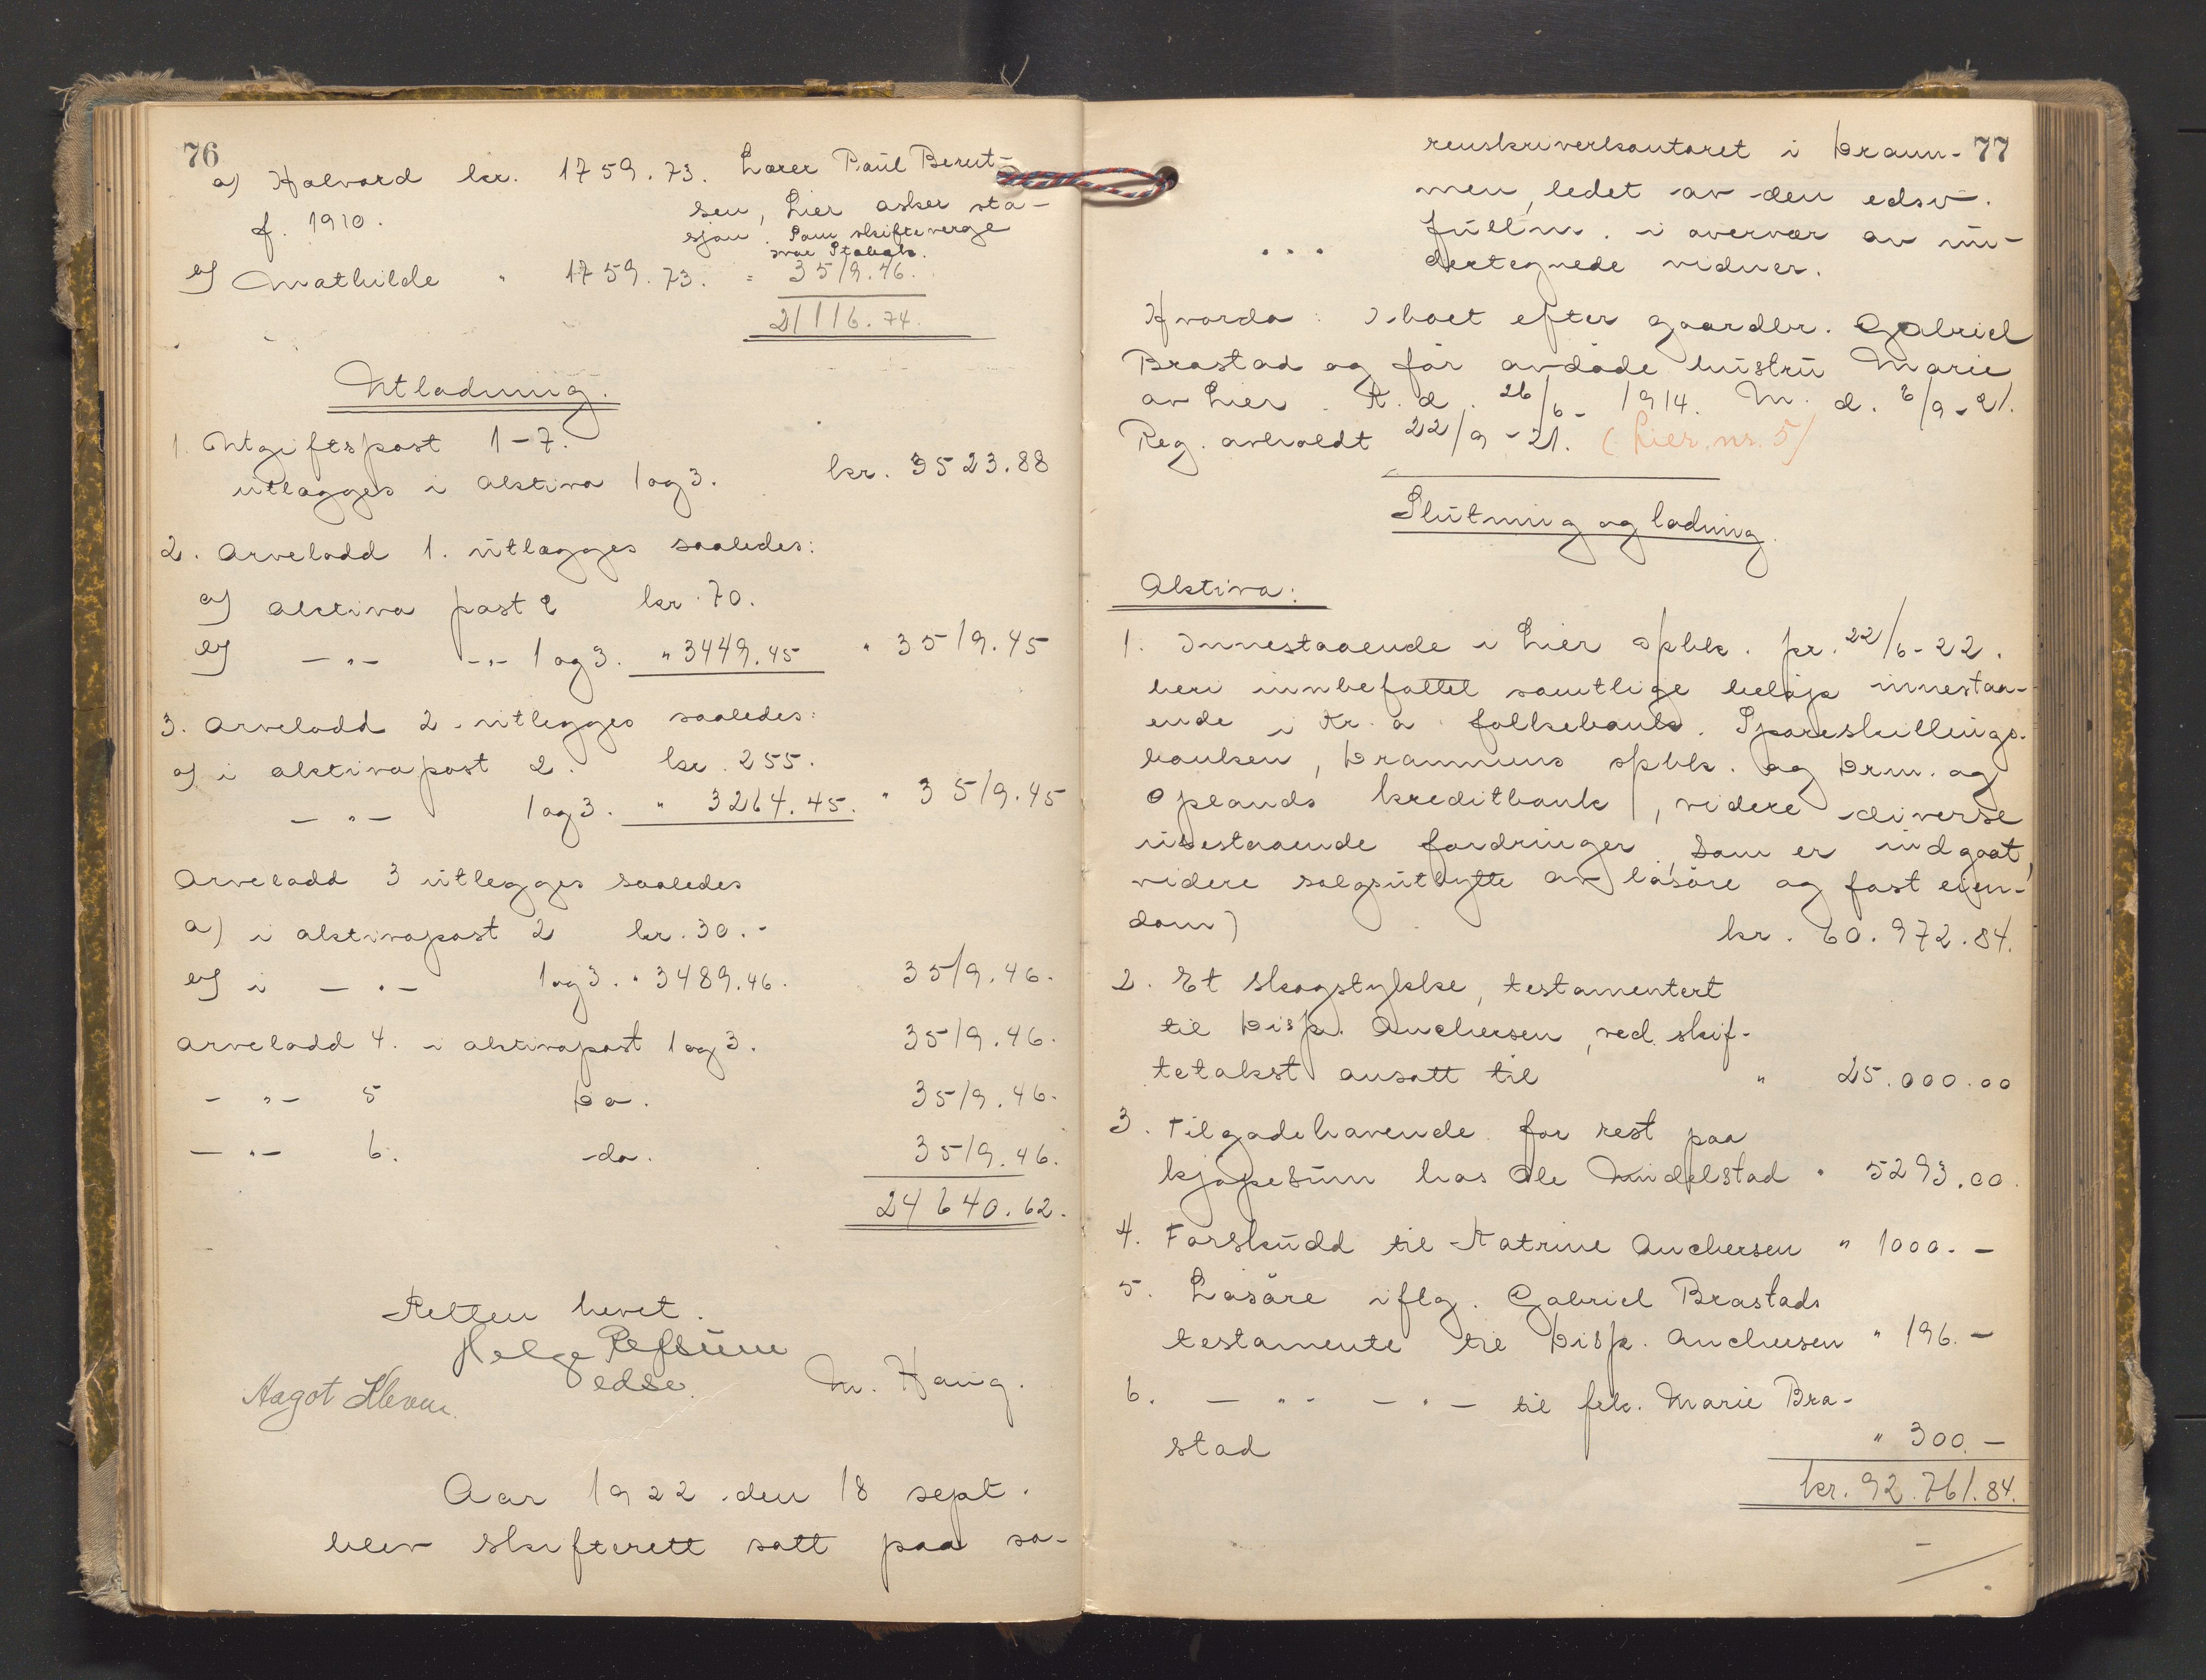 76
a) Halvard kr. 1759.73. Lærer Paul Bernt-
f. 1910. sen, Lier asker sta-
sjon. Som skifteverge
b) Mathilde " 1759.73. = 3519.46.
21116.74.
Utlodning.
1. Utgiftspost 1-7.
utlægges i aktiva 1 og 3. kr. 3523.88
2. Arvelodd 1. utlægges saaledes:
a) aktiva post 2 kr. 70.
b) -"- -"- 1 og 3. " 3449.45 " 3519.45
3. Arvelodd 2 utlegges saaledes:
a) i aktivapost 2. kr. 255.
-"- 1 og 3. " 3264.45. " 3519.45
Arvelodd 3 utlegges saaledes
a) i aktivapost 2 kr. 30.-
b) i -"- 1 og 3. " 3489.46. 3519.46.
Arvelodd 4. i aktivapost 1 og 3. 3519.46.
-"- 5 Do. 3519.46.
-"- 6. do. 3519.46.
24640.62.
Retten hevet.
Helge Refsum
edsv. M. Haug.
Aagot Kleven.
Aar 1922 den 18 sept.
blev skifterett satt paa so-
77
renskriverkontoret i Dram-
men, ledet av den edsv.
fullm. i overvær av un-
... dertegnede vidner.
Hvorda: I boet efter gaardbr. Gabriel
Brastad og før avdøde hustru Marie
av Lier. K. d. 26/6- 1914. M. d. 6/9-21.
Reg. avholdt 22/9-21. (Lier nr. 5)
Slutning og lodning.
Aktiva:
1. Innestaaende i Lier spbk. pr. 22/6-22.
heri innbefattet samtlige beløp innestaa-
ende i Kr.a folkebank. Spareskillings-
banken, Drammens spbk. og Drm. og
Oplands kreditbank, videre diverse
utestaaende fordringer som er indgaat,
videre salgsutbytte av løsøre og fast eien-
dom) kr. 60.972.84.
2. Et skogstykke, testamentert
til Disp. Anchersen, ved skif-
tetakst ansatt til " 25.000.00
3. Tilgodehavende for rest paa
kjøpesum hos Ole Muidelstad " 5293.00.
4. Forskudd til Katrine Anchersen " 1000.-
5. Løsøre iflg. Gabriel Brastads
testamente til Disp. Anchersen " 196.-
6. -"- -"- til frk. Marie Bra-
stad " 300.-
kr. 92.761.84.